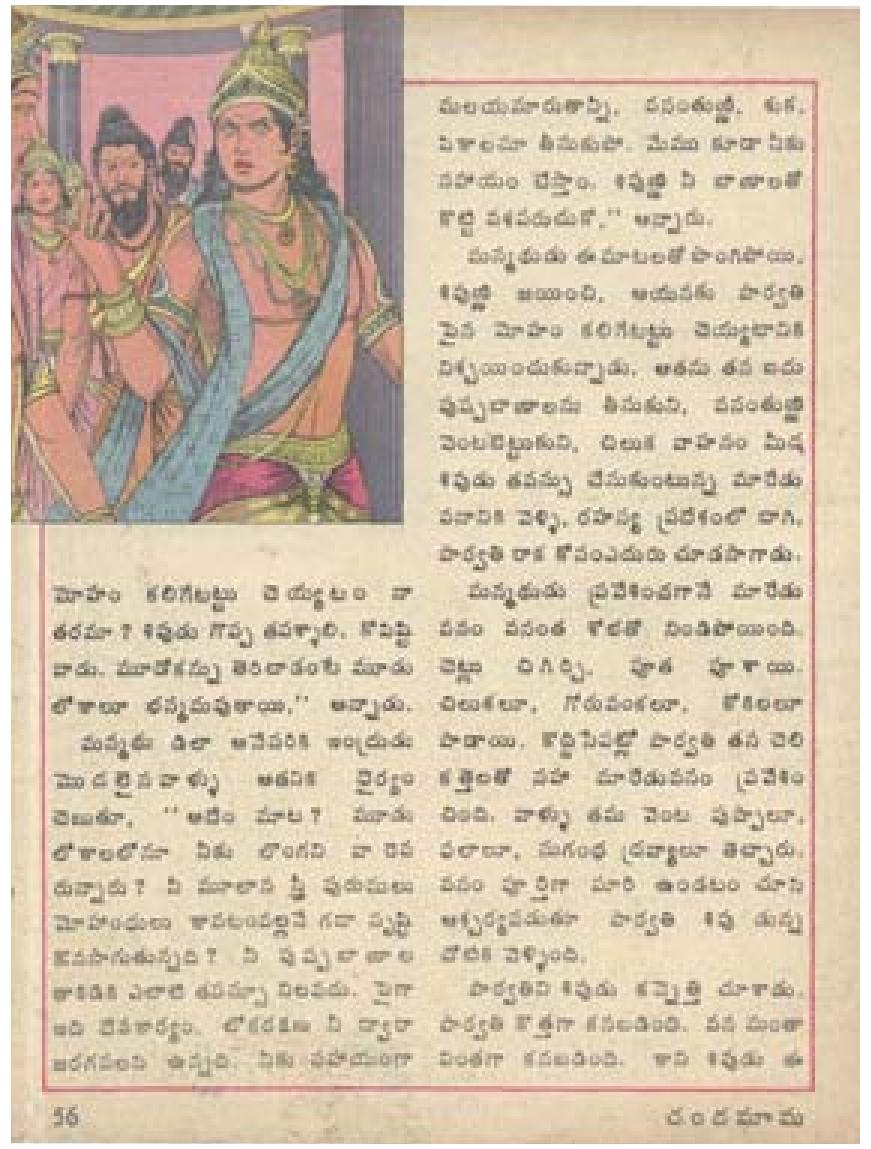 మోహం కలిగేటట్టు చెయ్యటం నా
తరమా? శివుడు గొప్ప తపశ్శాలి, కోపిష్టి
వాడు. మూడోకన్ను తెరిచాడంటే మూడు
లోకాలూ భస్మమవుతాయి,'' అన్నాడు.
మన్మథు డిలా అనేసరికి ఇంద్రుడు
మొదలైనవాళ్ళు అతనికి ధైర్యం
చెబుతూ, ''అదేం మాట? మూడు
లోకాలలోనూ నీకు లొంగని వా రెవ
రున్నారు? నీ మూలాన స్త్రీ పురుషులు
మోహాంధులు కావటంవల్లనే గదా సృష్టి
కొనసాగుతున్నది? నీ పుష్పబాణాల
తాకిడికి ఎలాటి తపస్సూ నిలవదు. పైగా
ఇది దేవకార్యం. లోకరక్షణ నీ ద్వారా
జరగవలసి ఉన్నది. నీకు సహాయంగా
మలయమారుతాన్ని, వసంతుణ్ణి, శుక,
పికాలనూ తీసుకుపో. మేము కూడా నీకు
సహాయం చేస్తాం. శివుణ్ణి నీ బాణాలతో
కొట్టి వశపరుచుకో,'' అన్నారు.
మన్మథుడు ఈ మాటలతో పొంగిపోయి,
శివుణ్ణి జయించి, ఆయనకు పార్వతి
పైన మోహం కలిగేటట్టు చెయ్యటానికి
నిశ్చయించుకున్నాడు. అతను తన ఐదు
పుష్పబాణాలను తీసుకుని, వసంతుణ్ణి
వెంటబెట్టుకుని, చిలుక వాహనం మీద
శివుడు తపస్సు చేసుకుంటున్న మారేడు
వనానికి వెళ్ళి, రహస్య ప్రదేశంలో దాగి,
పార్వతి రాక కోసంఎదురు చూడసాగాడు.
మన్మథుడు ప్రవేశించగానే మారేడు
వనం వసంత శోభతో నిండిపోయింది.
చెట్లు చిగిర్చి, పూత పూశాయి.
చిలుకలూ, గోరువంకలూ, కోకిలలూ
పాడాయి. కొద్దిసేపట్లో పార్వతి తన చెలి
కత్తెలతో సహా మారేడువనం ప్రవేశిం
చింది. వాళ్ళు తమ వెంట పుష్పాలూ,
ఫలాలూ, సుగంధ ద్రవ్యాలూ తెచ్చారు.
వనం పూర్తిగా మారి ఉండటం చూసి
ఆశ్చర్యపడుతూ పార్వతి శివు డున్న
చోటికి వెళ్ళింది.
పార్వతిని శివుడు కన్నెత్తి చూశాడు.
పార్వతి కొత్తగా కనబడింది. వన మంతా
వింతగా కనబడింది. కాని శివుడు ఈ
56
చందమామ